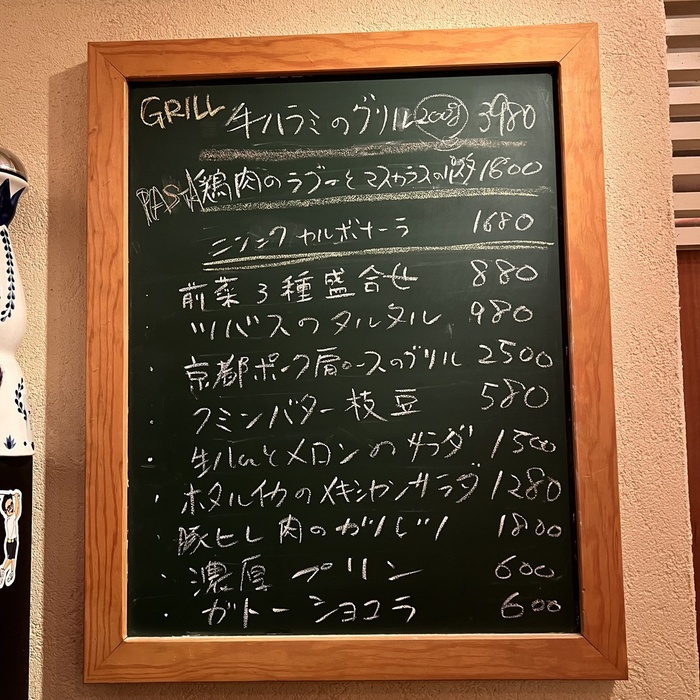 GRILL 牛ハラミのグリル 200g 3980
PASTA 鶏肉のラグーとマスカラスのパスタ 1800
ニンニクカルボナーラ 1680
前菜3種盛合せ 880
ツバスのタルタル 980
京都ポーク肩ロースのグリル 2500
クミンバター枝豆 580
生ハムとメロンのサラダ 1500
ホタルイカのメキシカンサラダ 1280
豚ヒレ肉の 1800
濃厚プリン 600
ガトーショコラ 600